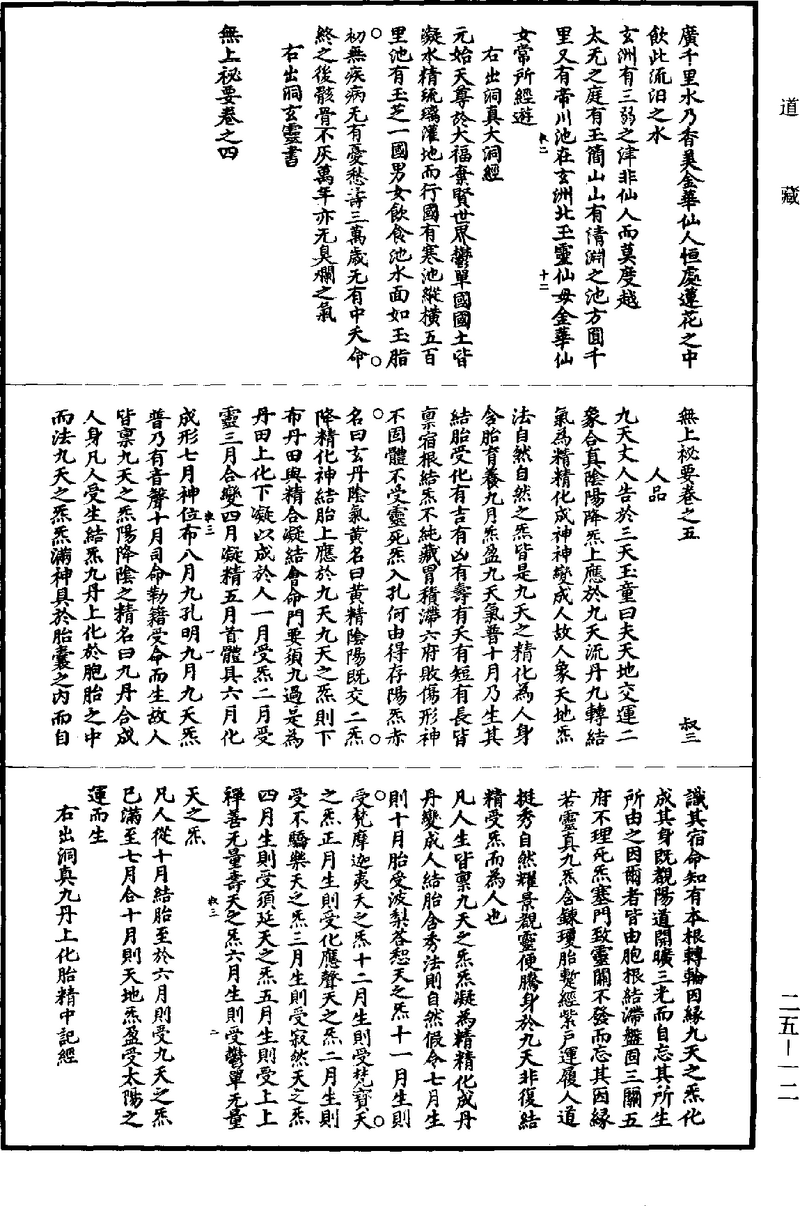 道藏
廣千里水乃香美金華仙人恒處蓮花之中
飲此流汨之水
玄洲有三弱之津非仙人而莫度越
太无之庭有玉簡山山有清淵之池方圓千
里又有帝川池在玄洲北玉靈仙母金華仙
女常所經遊
右出洞真大洞經
元始天尊於大福棄賢世界鬱單國國土皆
凝水精琉璃灌地而行國有寒池縱橫五百
里池有玉芝一國男女飲食池水面如玉脂
初無疾病无有憂愁壽三萬歲无有中夭命
終之後骸骨不灰萬年亦无臭爛之氣
右出洞玄靈書
無上祕要卷之四
無上祕要卷之五
叔三
人品
九天丈人告於三天玉童曰夫天地交運二
象合真陰陽降炁上應於九天流丹九轉結
氣為精精化成神神變成人故人象天地炁
法自然自然之炁皆是九天之精化為人身
含胎育養九月炁盈九天氣普十月乃生其
結胎受化有吉有凶有壽有夭有短有長皆
禀宿根結炁不純藏胃積滯六府敗傷形神
不固體不受靈死炁入孔何由得存陽炁赤
名曰玄丹陰氣黃名曰黃精陰陽既交二炁
降精化神結胎上應於九天九天之炁則下
布丹田與精合凝結會命門要須九過是為
丹田上化下凝以成於人一月受炁二月受
靈三月合變四月凝精五月首體具六月化
成形七月神位布八月九孔明九月九天炁
普乃有音聲十月司命勒籍受命而生故人
皆禀九天之炁陽降陰之精名曰九丹合成
人身凡人受生結炁九丹上化於胞胎之中
而法九天之炁炁滿神具於胎囊之內而自
識其宿命知有本根轉輪因緣九天之炁化
成其身既觀陽道開曠三光而自忘其所生
所由之因爾者皆由胞根結滯盤固三關五
府不理死炁塞門致靈關不發而忘其因緣
若靈真九炁含鍊瓊胎蹔經紫戶運履人道
挺秀自然耀景觀靈便騰身於九天非復結
精受炁而為人也
凡人生皆禀九天之炁炁凝為精精化成丹
丹變成人結胎含秀法則自然假令七月生
則十月胎受波梨荅恕天之炁十一月生則
受梵摩迦夷天之炁十二月生則受梵寶天
之炁正月生則受化應聲天之炁二月生則
受不驕樂天之炁三月生則受寂然天之炁
四月生則受須延天之炁五月生則受上上
禪善无量壽天之炁六月生則受鬱單无量
天之炁
凡人從十月結胎至於六月則受九天之炁
已滿至七月合十月則天地炁盈受太陽之
運而生
右出洞真九丹上化胎精中記經
二五—一二